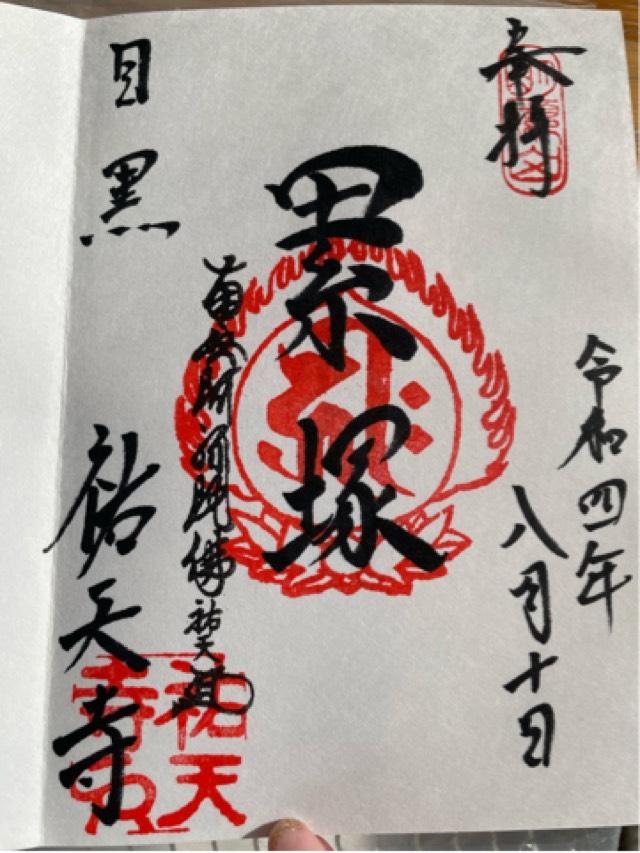 奉拝
令和四年
八月十日
累塚
南無阿弥陀佛祐天
目黒 祐天寺
祐天
寺印